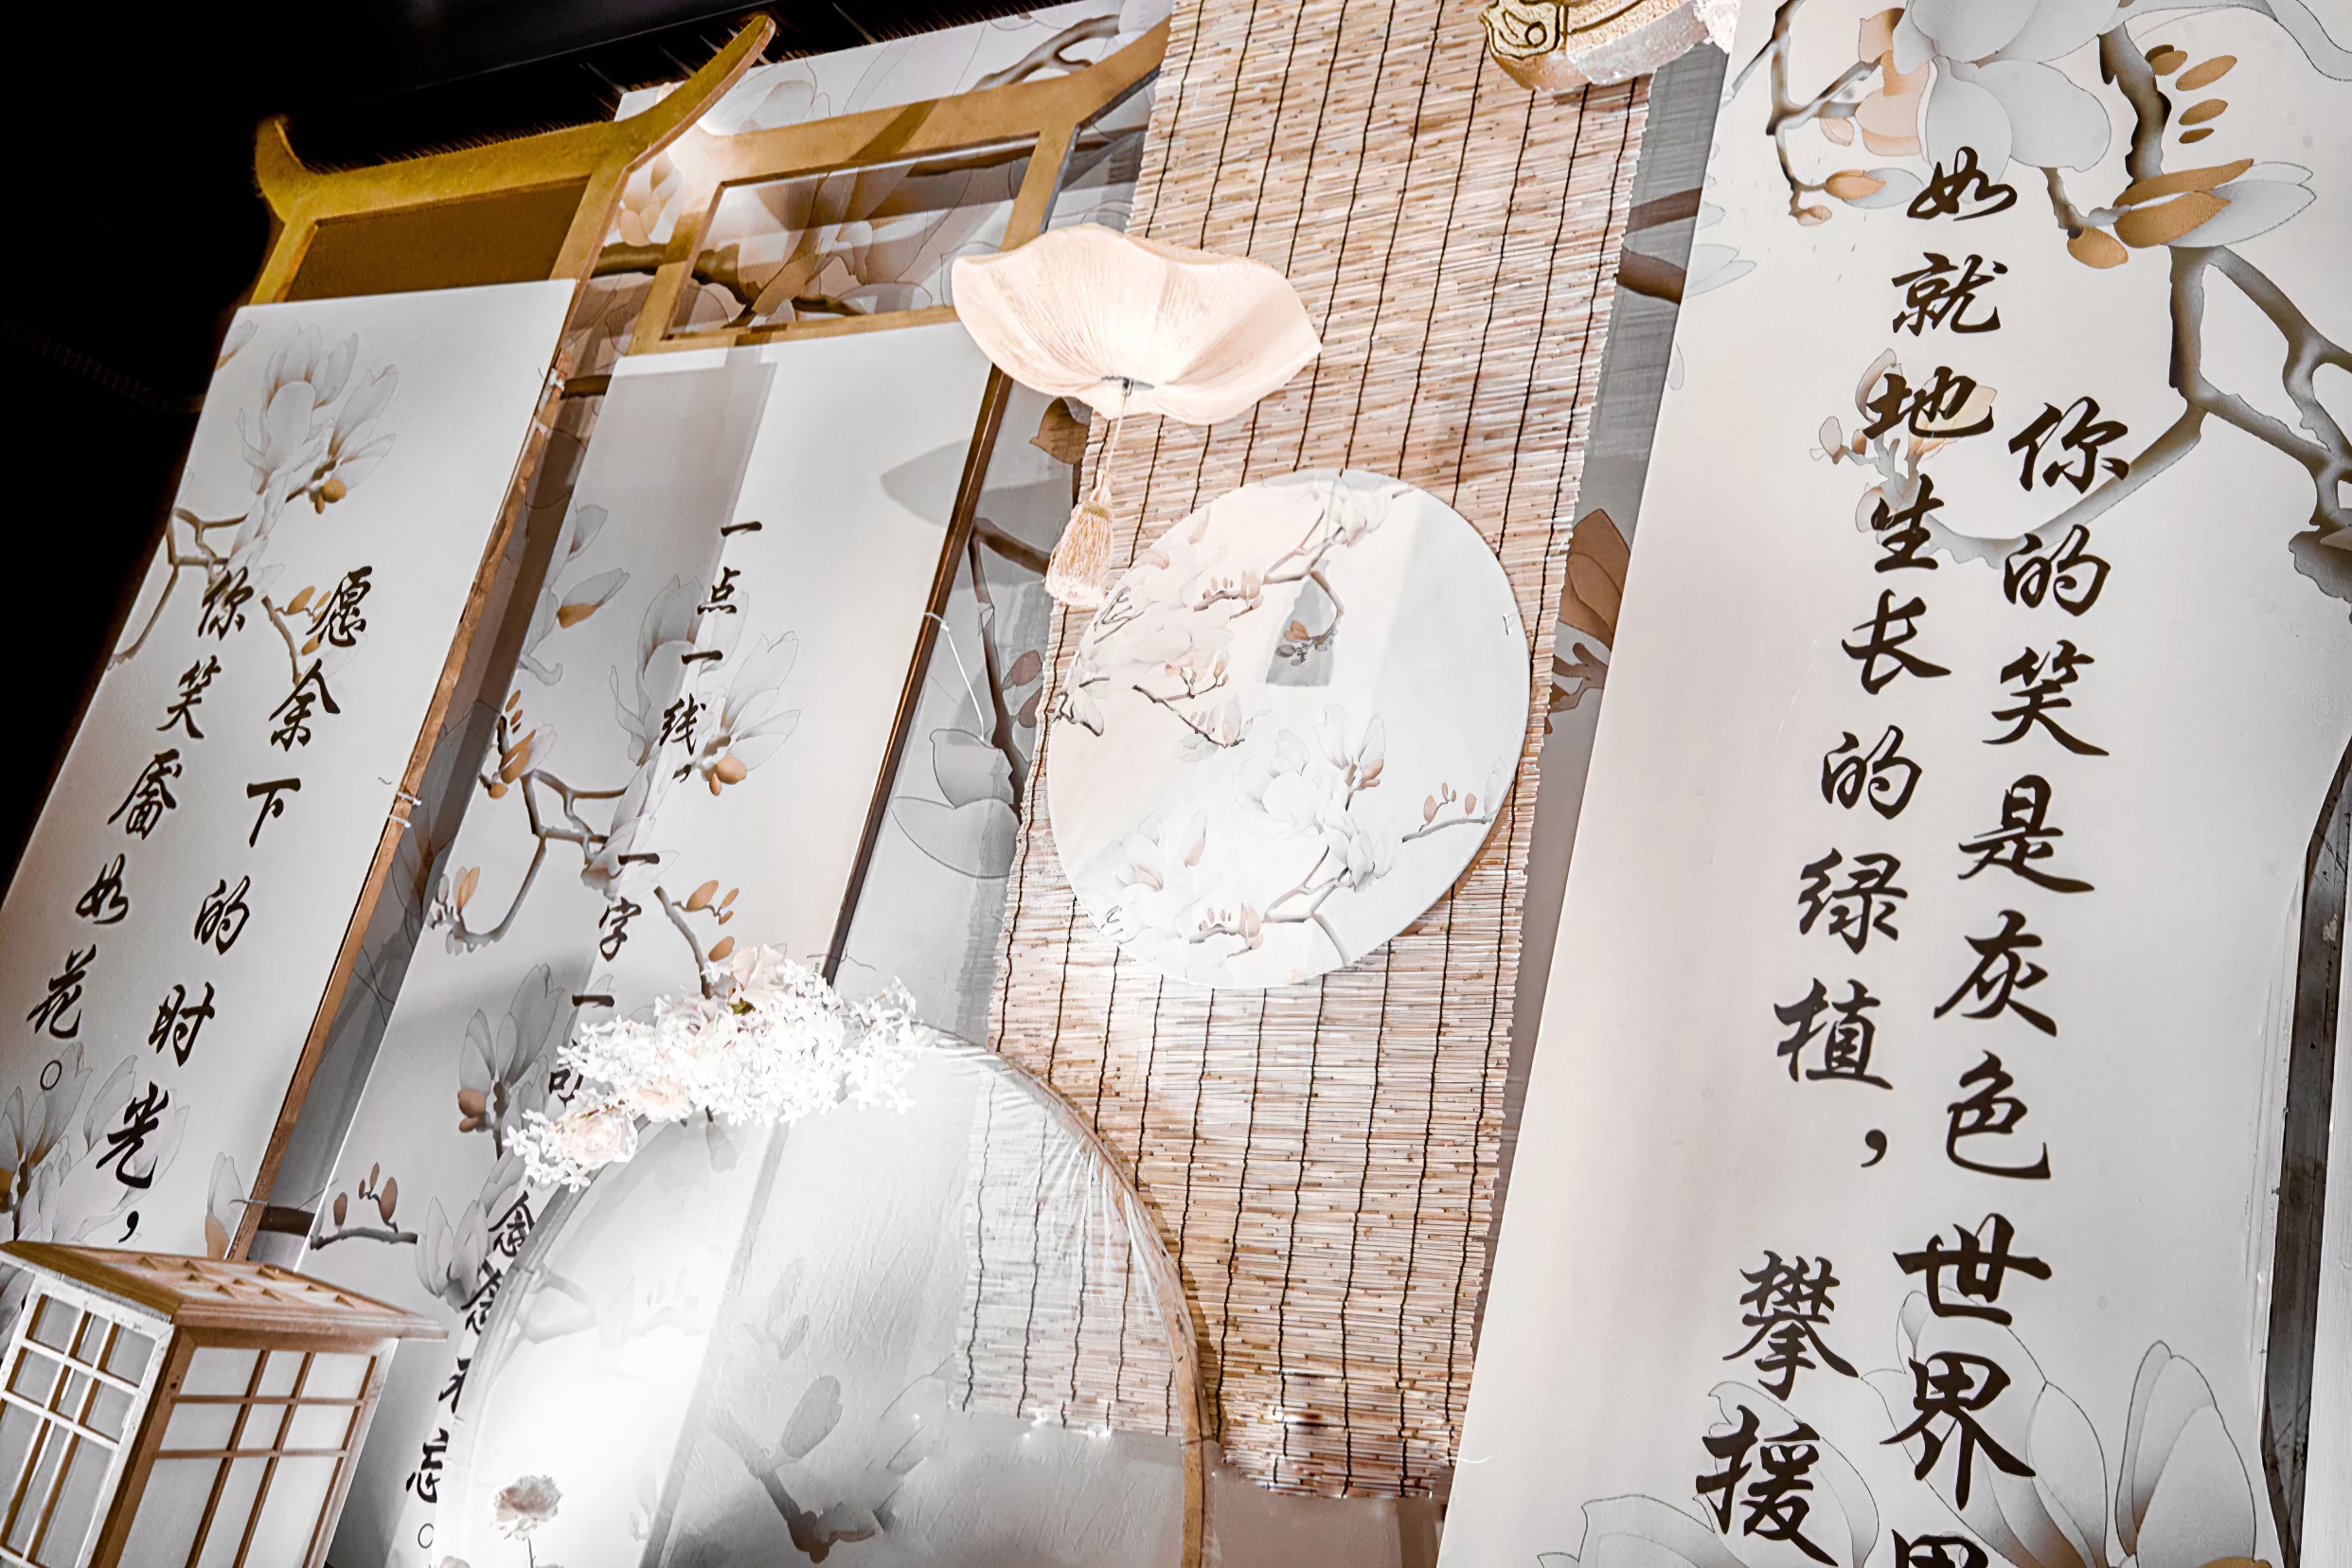 你的笑是灰色世界
如就地生长的绿植，攀援
一点一线，一字一句
念念不忘。
愿余下的时光，
你笑靥如花。